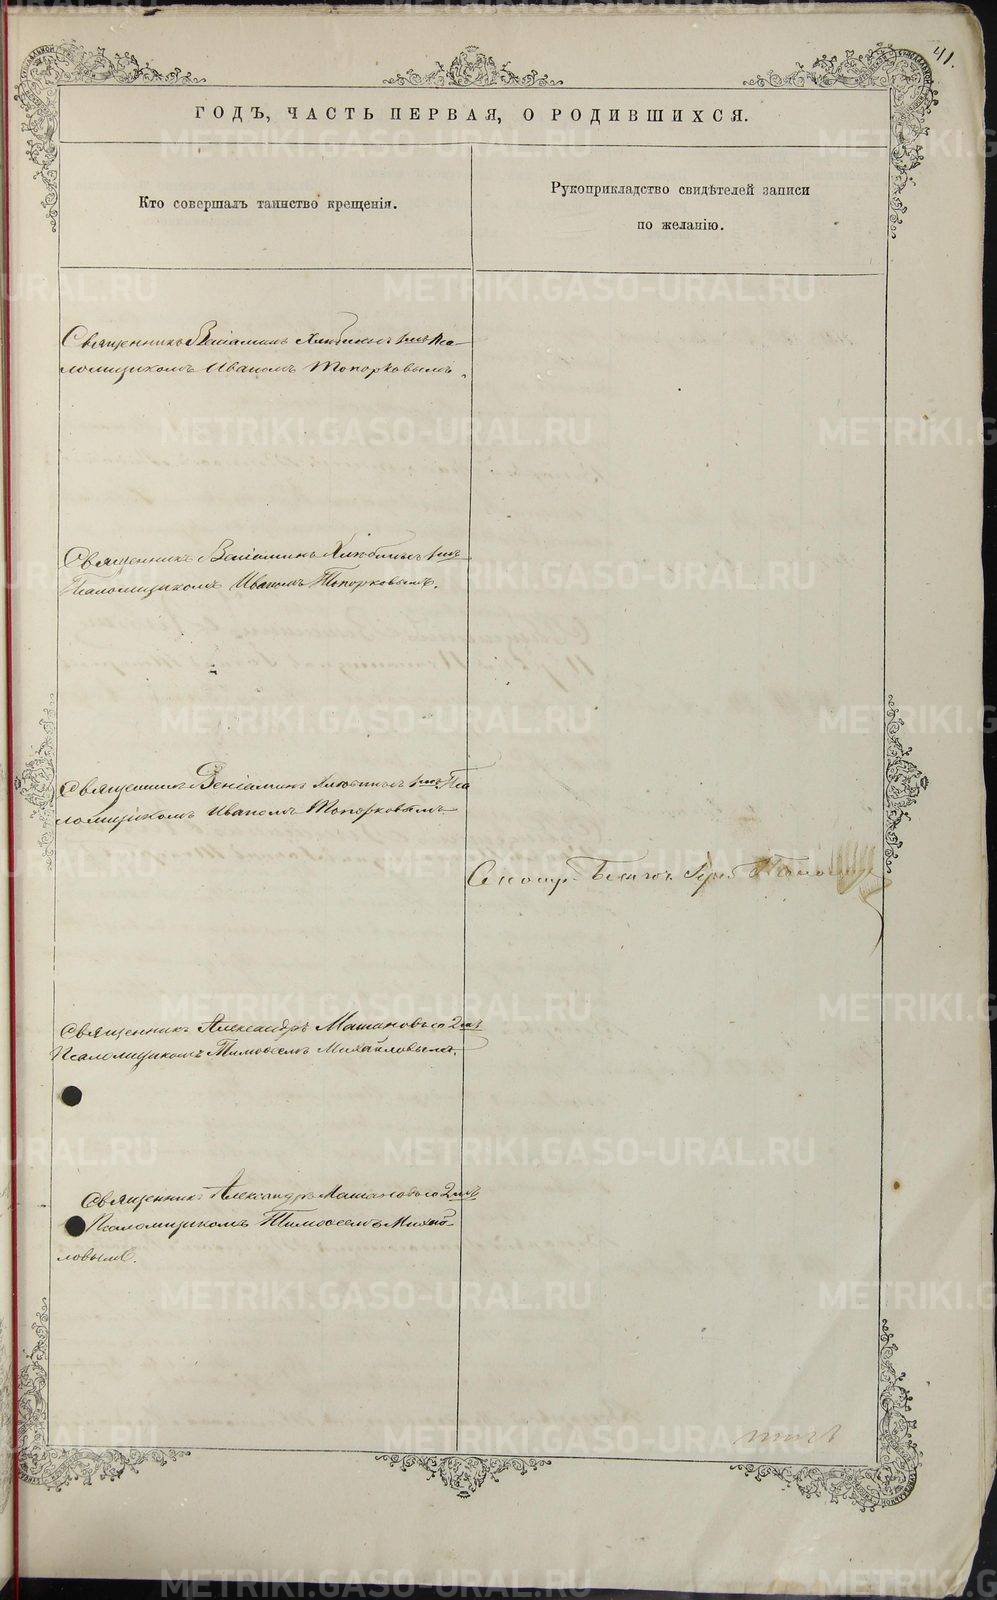 41.
ГОДЪ, ЧАСТЬ ПЕРВАЯ, О РОДИВШИХСЯ.
Кто совершалъ таинство крещенія.
Рукоприкладство свидѣтелей записи
по желанію.
Священникъ Веніаминъ Хлюбинъ съ 1мъ Пса
ломщикомъ Иваномъ Топорковымъ.
Священникъ Веніаминъ 1мъ
Псаломщикомъ Иваномъ Топорковымъ.
Священникъ Веніаминъ 1мъ Пса
ломщикомъ Иваномъ Топорковымъ
Священникъ Александръ Машановъ со 2мъ
Псаломщикомъ Тимофеемъ Михайловымъ.
Священникъ Александръ Машановъ со 2мъ
Псаломщикомъ Тимофеемъ Михай
ловымъ.
METRIKI.GASO-URAL.RU